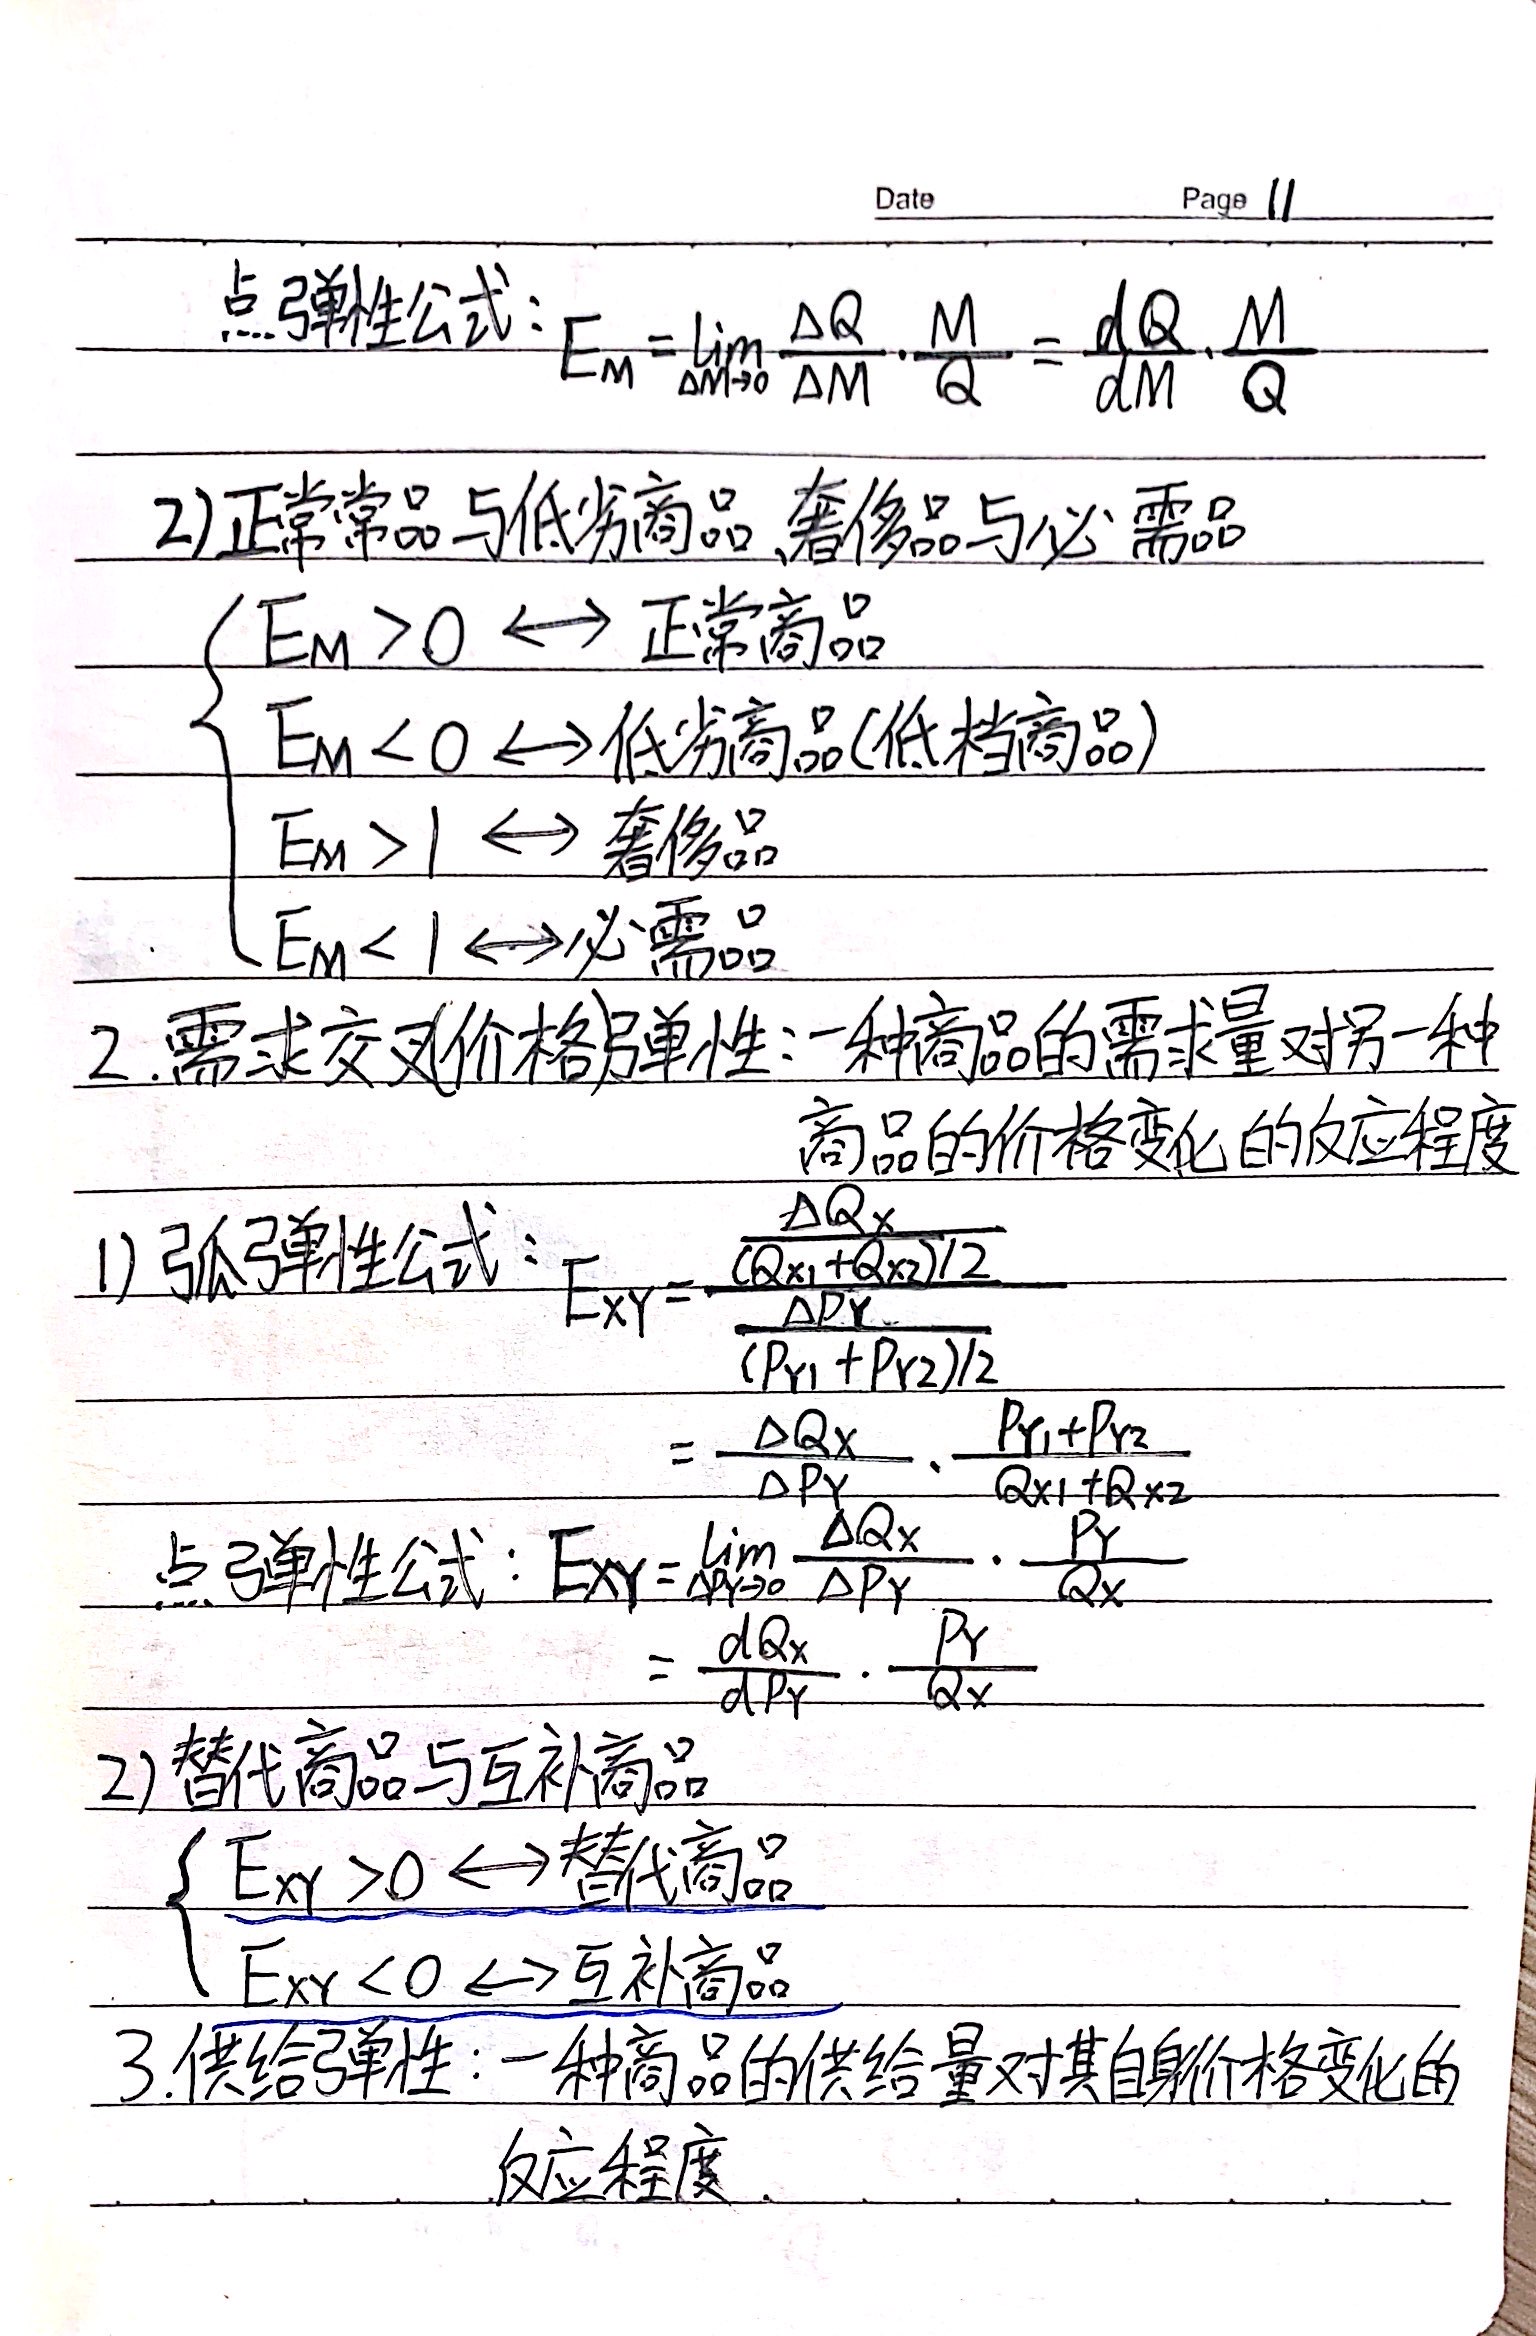 Date Page 11
点弹性公式: E_M = lim_{ΔM→0} ΔQ/ΔM · M/Q = dQ/dM · M/Q
2)正常常品与低劣商品、奢侈品与必需品
E_M > 0 ↔ 正常商品
E_M < 0 ↔ 低劣商品(低档商品)
E_M > 1 ↔ 奢侈品
E_M < 1 ↔ 必需品
2.需求交叉(价格)弹性:一种商品的需求量对另一种
商品的价格变化的反应程度
1)弧弹性公式: E_XY = (ΔQ_X/((Q_X1+Q_X2)/2))/(ΔP_Y/((P_Y1+P_Y2)/2))
= ΔQ_X/ΔP_Y · (P_Y1+P_Y2)/(Q_X1+Q_X2)
点弹性公式: E_XY = lim_{ΔP_Y→0} ΔQ_X/ΔP_Y · P_Y/Q_X
= dQ_X/dP_Y · P_Y/Q_X
2)替代商品与互补商品
E_XY > 0 ↔ 替代商品
E_XY < 0 ↔ 互补商品
3.供给弹性:一种商品的供给量对其自身价格变化的
反应程度.